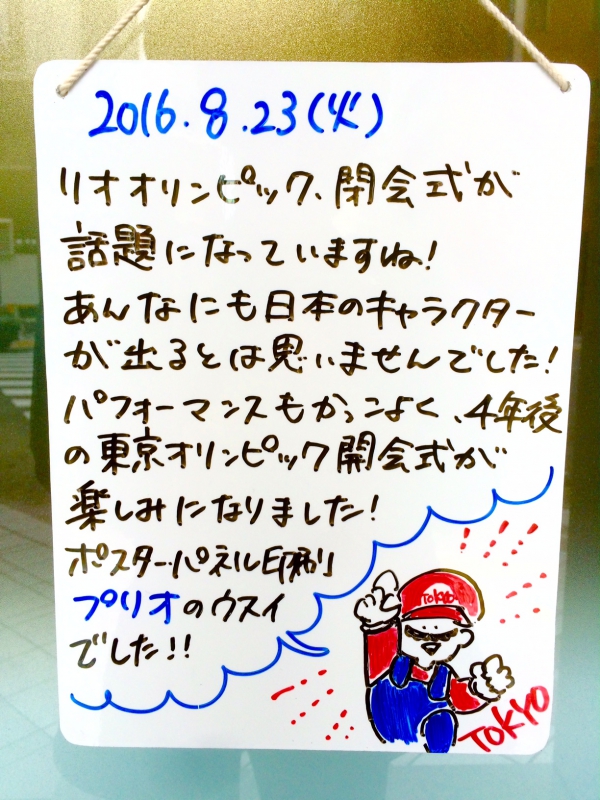 2016.8.23(火)
リオオリンピック、閉会式が
話題になっていますね!
あんなにも日本のキャラクター
が出るとは思いませんでした!
パフォーマンスもかっこよく、4年後
の東京オリンピック開会式が
楽しみになりました!
ポスター・パネル印刷
プリオのウスイ
でした!!
TOKYO
TOKYO